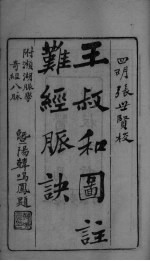 四明張世賢校
王叔和圖註
難經脈訣
附瀕湖脈學
奇經八脈
暨陽韓鳴鳳題